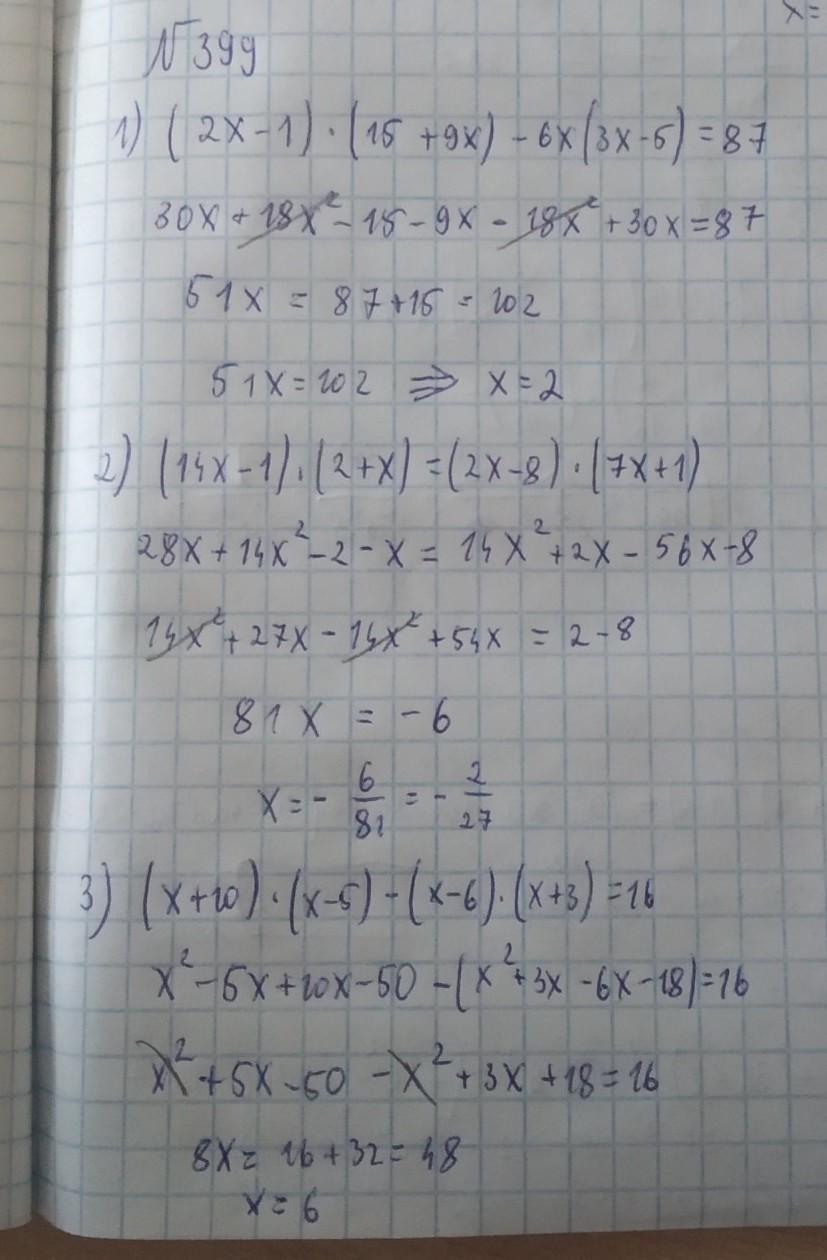 x=
№399
1) (2x-1)·(15+9x)-6x(3x-5)=87
30x+18x²-15-9x-18x²+30x=87
51x=87+15=102
51x=102 ⇒ x=2
2) (14x-1)·(2+x)=(2x-8)·(7x+1)
28x+14x²-2-x=14x²+2x-56x-8
14x²+27x-14x²+54x=2-8
81x=-6
x=-6/81=-2/27
3) (x+10)·(x-5)-(x-6)·(x+3)=16
x²-5x+10x-50-(x²+3x-6x-18)=16
x²+5x-50-x²+3x+18=16
8x=16+32=48
x=6